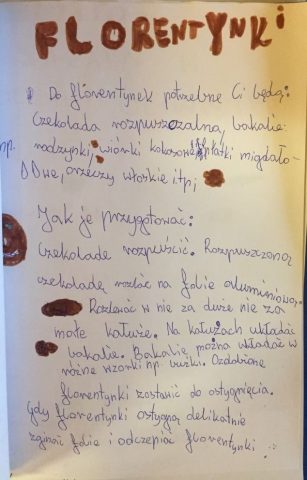 FLORENTYNKI
Do florentynek potrzebne Ci będą:
Czekolada rozpuszczalna, bakalie:
np. rodzynki, wiórki kokosowe, płatki migdało-
owe, orzeczy włoskie itp,
Jak je przygotować:
Czekoladę rozpuścić. Rozpuszczoną
czekoladę rozlać na folię aluminiową.
Rozlewać w nie za duże nie za
małe kałuże. Na kałużach układać
bakalie. Bakalię można układać w
różne wzorki np. buźki. Ozdobione
florentynki zostawić do ostygnięcia.
Gdy florentynki ostygną delikatnie
zginać folię i odczepiać florentynki